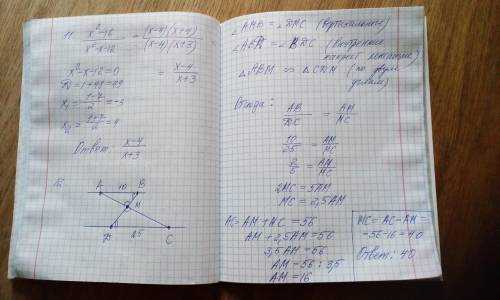 11. x²-16 / x²-x-12 = (x-4)(x+4) / (x-4)(x+3)
x²-x-12=0 = x-4 / x+3
D=1+48=49
x₁ = 1-7 / 2 = -3
x₂ = 1+7 / 2 = 4
Ответ: x-4 / x+3
A 10 B
M
D 25 C
∠AMB = ∠DMC (вертикальные)
(внутренние
накрест лежащие)
△ABM ∾ △CDM (по двум
углам)
Отсюда: AB / DC = AM / MC
10 / 25 = AM / MC
2 / 5 = AM / MC
2MC = 5AM
MC = 2,5AM
AC = AM + MC = 56
AM + 2,5AM = 56
3,5AM = 56
AM = 56 : 3,5
AM = 16
MC = AC - AM =
= 56 - 16 = 40
Ответ: 40